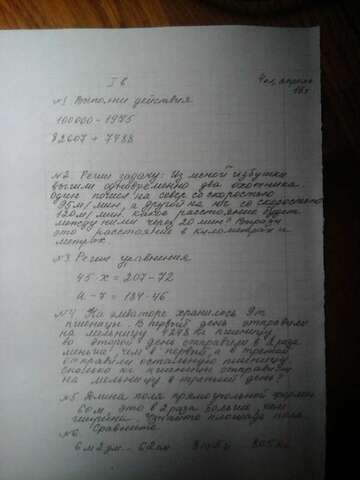 I в 4 кл, апрель
16 г
№1 Выполни действия
100000 - 1975
82607 + 7488
№2. Реши задачу: Из лесной избушки
вышли одновременно два охотника.
Один пошёл на север со скоростью
95 м/мин, а другой на юг со скоростью
120 м/мин. Какое расстояние будет
между ними через 20 мин? Вырази
это расстояние в километрах и
метрах.
№3 Реши уравнения
45 х = 207 - 72
а - 7 = 184 - 46
№4 На элеваторе хранилось 9т
пшеницы. В первый день отправили
на мельницу кг пшеницы,
во второй день отправили в 2 раза
меньше, чем в первый, а в третий
отправили остальную пшеницу.
Сколько кг пшеницы отправили
на мельницу в третий день?
№5 Длина поля прямоугольной формы
60м, это в 2 раза больше, чем
ширина. Найдите площадь поля.
№6 Сравните
6 м 2 дм